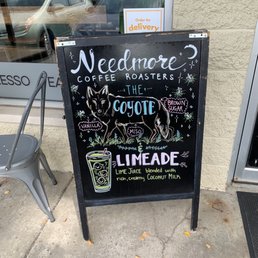 Order for
delivery
ESSO
Needmore
COFFEE ROASTERS
THE
COYOTE
BROWN
SUGAR
VANILLA
MISO
LIMEADE
LIME JUICE blended with
rich, creamy COCONUT MILK